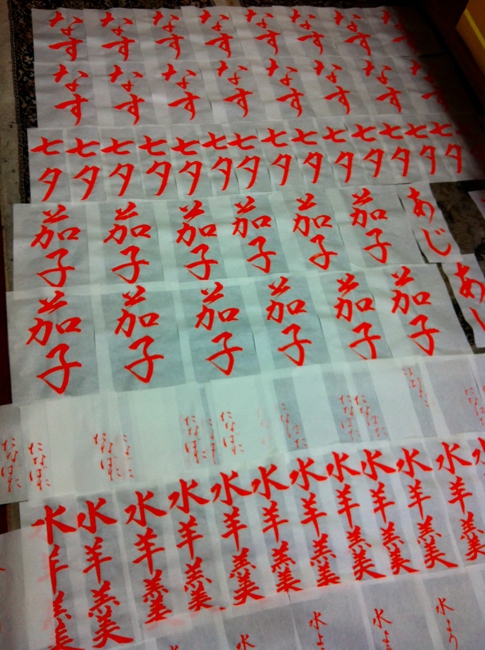 なす なす なす なす なす なす なす なす
なす なす なす なす なす なす なす
七夕 七夕 七夕 七夕 七夕 七夕 七夕 七夕 七夕 七夕 七夕 七夕 七夕 七夕
茄子 茄子 茄子 茄子 茄子 茄子 あじ
茄子 茄子 茄子 茄子 茄子 茄子 あじ
たなばた たなばた たなばた たなばた たなばた たなばた
水羊羹 水羊羹 水羊羹 水羊羹 水羊羹 水羊羹 水羊羹 水羊羹 水羊羹 水羊羹 水羊羹
水よう 水よう 水よう